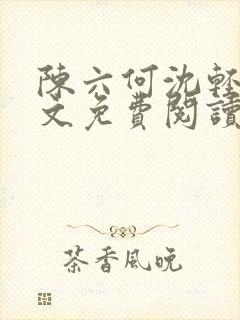 陳六何沈輕
文免費閱讀
茶香風晚